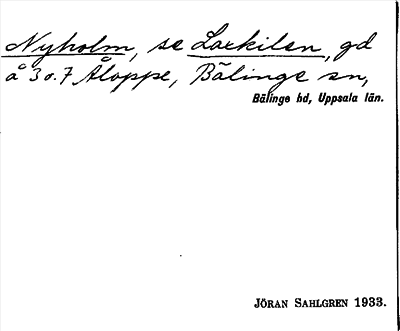 Nyholm, se Lackilen, gd
å 3 o. 7 Åloppe, Bälinge sn,
Bälinge hd, Uppsala län.
JÖRAN SAHLGREN 1933.